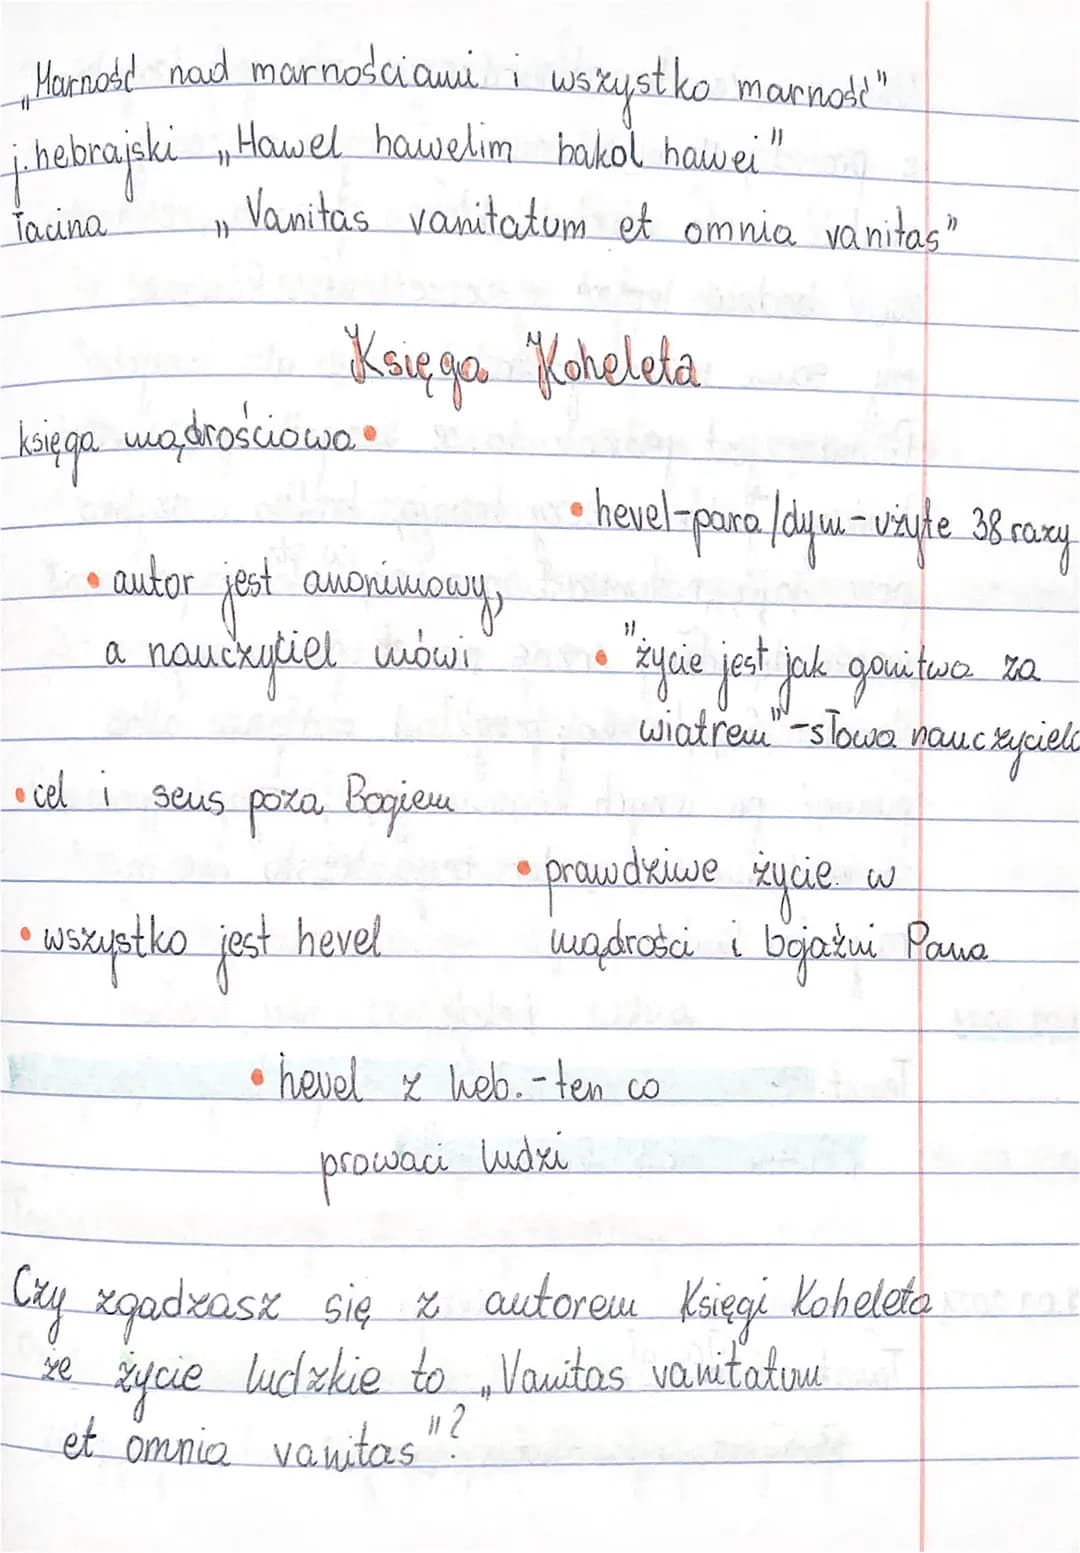 „Marność nad marnościami i wszystko marność"
j. hebrajski „Hawel hawelim hakol hawei"
łacina „Vanitas vanitatum et omnia vanitas"
Księga Koheleta
księga mądrościowa •
• hevel-para/dym-użyte 38 razy
• autor jest anonimowy,
a nauczyciel mówi
• "życie jest jak gonitwa za
wiatrem"-słowa nauczyciela
• cel i sens poza Bogiem
• prawdziwe życie w
mądrości i bojaźni Pana
• wszystko jest hevel
• hevel z heb.-ten co
prowaci ludzi
Czy zgadzasz się z autorem Księgi Koheleta
że życie ludzkie to „Vanitas vanitatum
et omnia vanitas"?